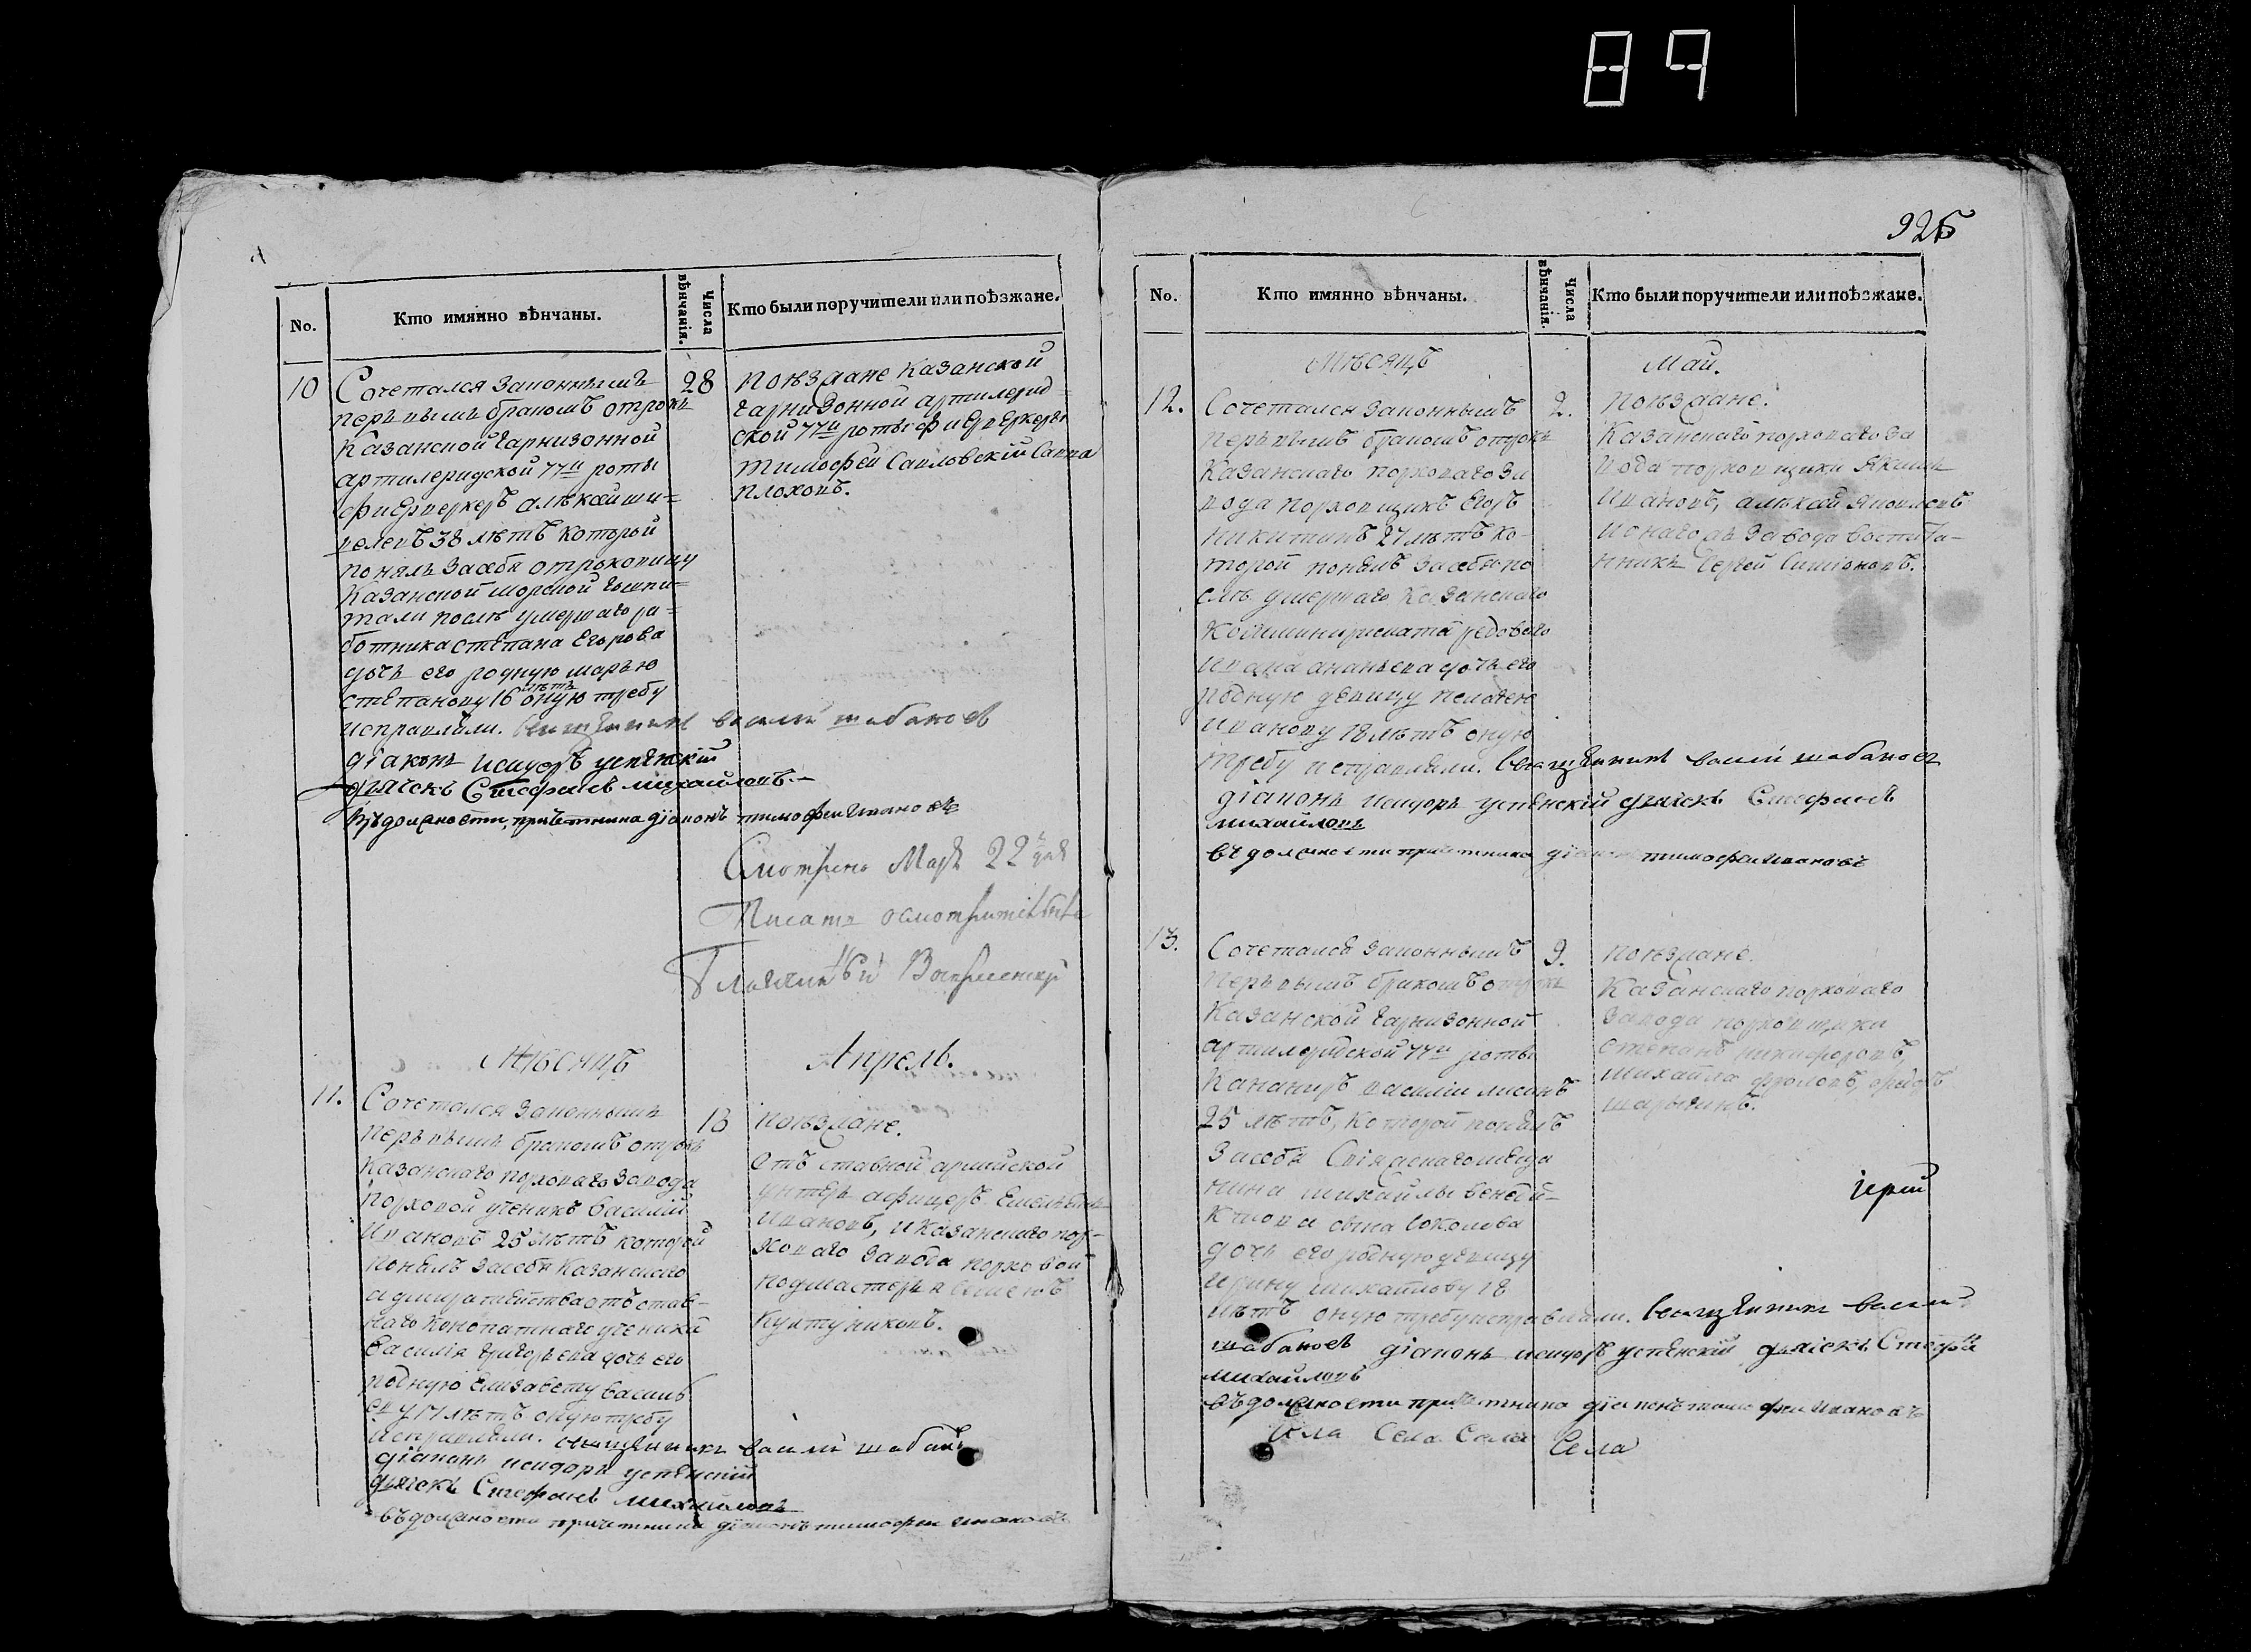 84
926
No.
Кто имянно вѣнчаны.
Числа вѣнчанія.
Кто были поручители или поѣзжане.
10
28
Сочетался законнымъ
первымъ бракомъ отрокъ
Казанской гарнизонной
артилеридской 77й роты
фиерверкеръ алѣкѣй
38 лѣтъ которой
понялъ засебя отроковицу
Казанской морской гошпи=
тали послѣ умершаго ра=
ботника стѣпана Егорова
дочь его родную марью
стѣпанову 16 лѣтъ оную требу
исправляли. священникъ васили шабановъ
діаконъ исидоръ успѣнский
дьячекъ Стефанъ михайловъ.
въ должности причѣтника діаконъ тимофеи ивановъ
поѣзжане Казанской
гарнизонной артилерид=
ской 77й роты фиерверкеры
тимофей Савловский Савва
плоховъ.
Смотрено Мар 22 дня
Мѣсяцъ Апрель.
11.
Сочетался законнымъ
первымъ бракомъ отрокъ
Казанскаго порховаго завода
порховой ученикъ василий
ивановъ 25 лѣтъ которой
понялъ засебя казанскаго
адмиралтѣйства отъстав-
наго конопатнаго ученика
василія григорьева дочь его
родную Елизавету василь
еву 17 лѣтъ оную требу
исправляли. священникъ васили шабановъ
діаконъ исидоръ успѣнский
дьячекъ Стефанъ михайловъ
въ должности причетника діаконъ тимофеи ивановъ
поѣзжане.
отъставной армейской
унтеръ афицеръ
ивановъ, и казанскаго пор-
ховаго завода порховой
подмастерья
No.
Кто имянно вѣнчаны.
Числа вѣнчанія.
Кто были поручители или поѣзжане.
Мѣсяцъ Май.
12.
2.
Сочетался законнымъ
первымъ бракомъ отрокъ
Казанскаго порховаго за
вода порховщикъ Егоръ
никитинъ 27 лѣтъ ко-
торой понялъ засебя по
слѣ умершаго Казанскаго
редоваго
ивана ананьева дочь его
родную девицу пелагею
иванову 18 лѣтъ оную
требу исправляли. священникъ васили шабановъ
діаконъ исидоръ успѣнский дьячекъ Стефанъ
михайловъ
въ должности причетника діаконъ тимофеи ивановъ
поѣзжане.
Казанскаго порховаго за
вода порховщики якимъ
ивановъ, алѣкѣй яковлевъ
и онагожъ завода воспита-
нникъ Сергей Симионовъ.
13.
9.
Сочетался законнымъ
первымъ бракомъ отрокъ
Казанской гарнизонной
артилеридской 77й роты
кананиръ василий лисинъ
25 лѣтъ, которой понялъ
засебя
михайлы
сына соколова
дочь его родную девицу
ирину михайлову 18
лѣтъ оную требу исправляли. священникъ васили
шабановъ діаконъ исидоръ успѣнский дьячекъ Стефанъ
михайловъ
въ должности причетника діаконъ тимофеи ивановъ
Села Села Села
поѣзжане.
Казанскаго порховаго
завода порховщики
степанъ никифоровъ,
михайла фроловъ,
иерей